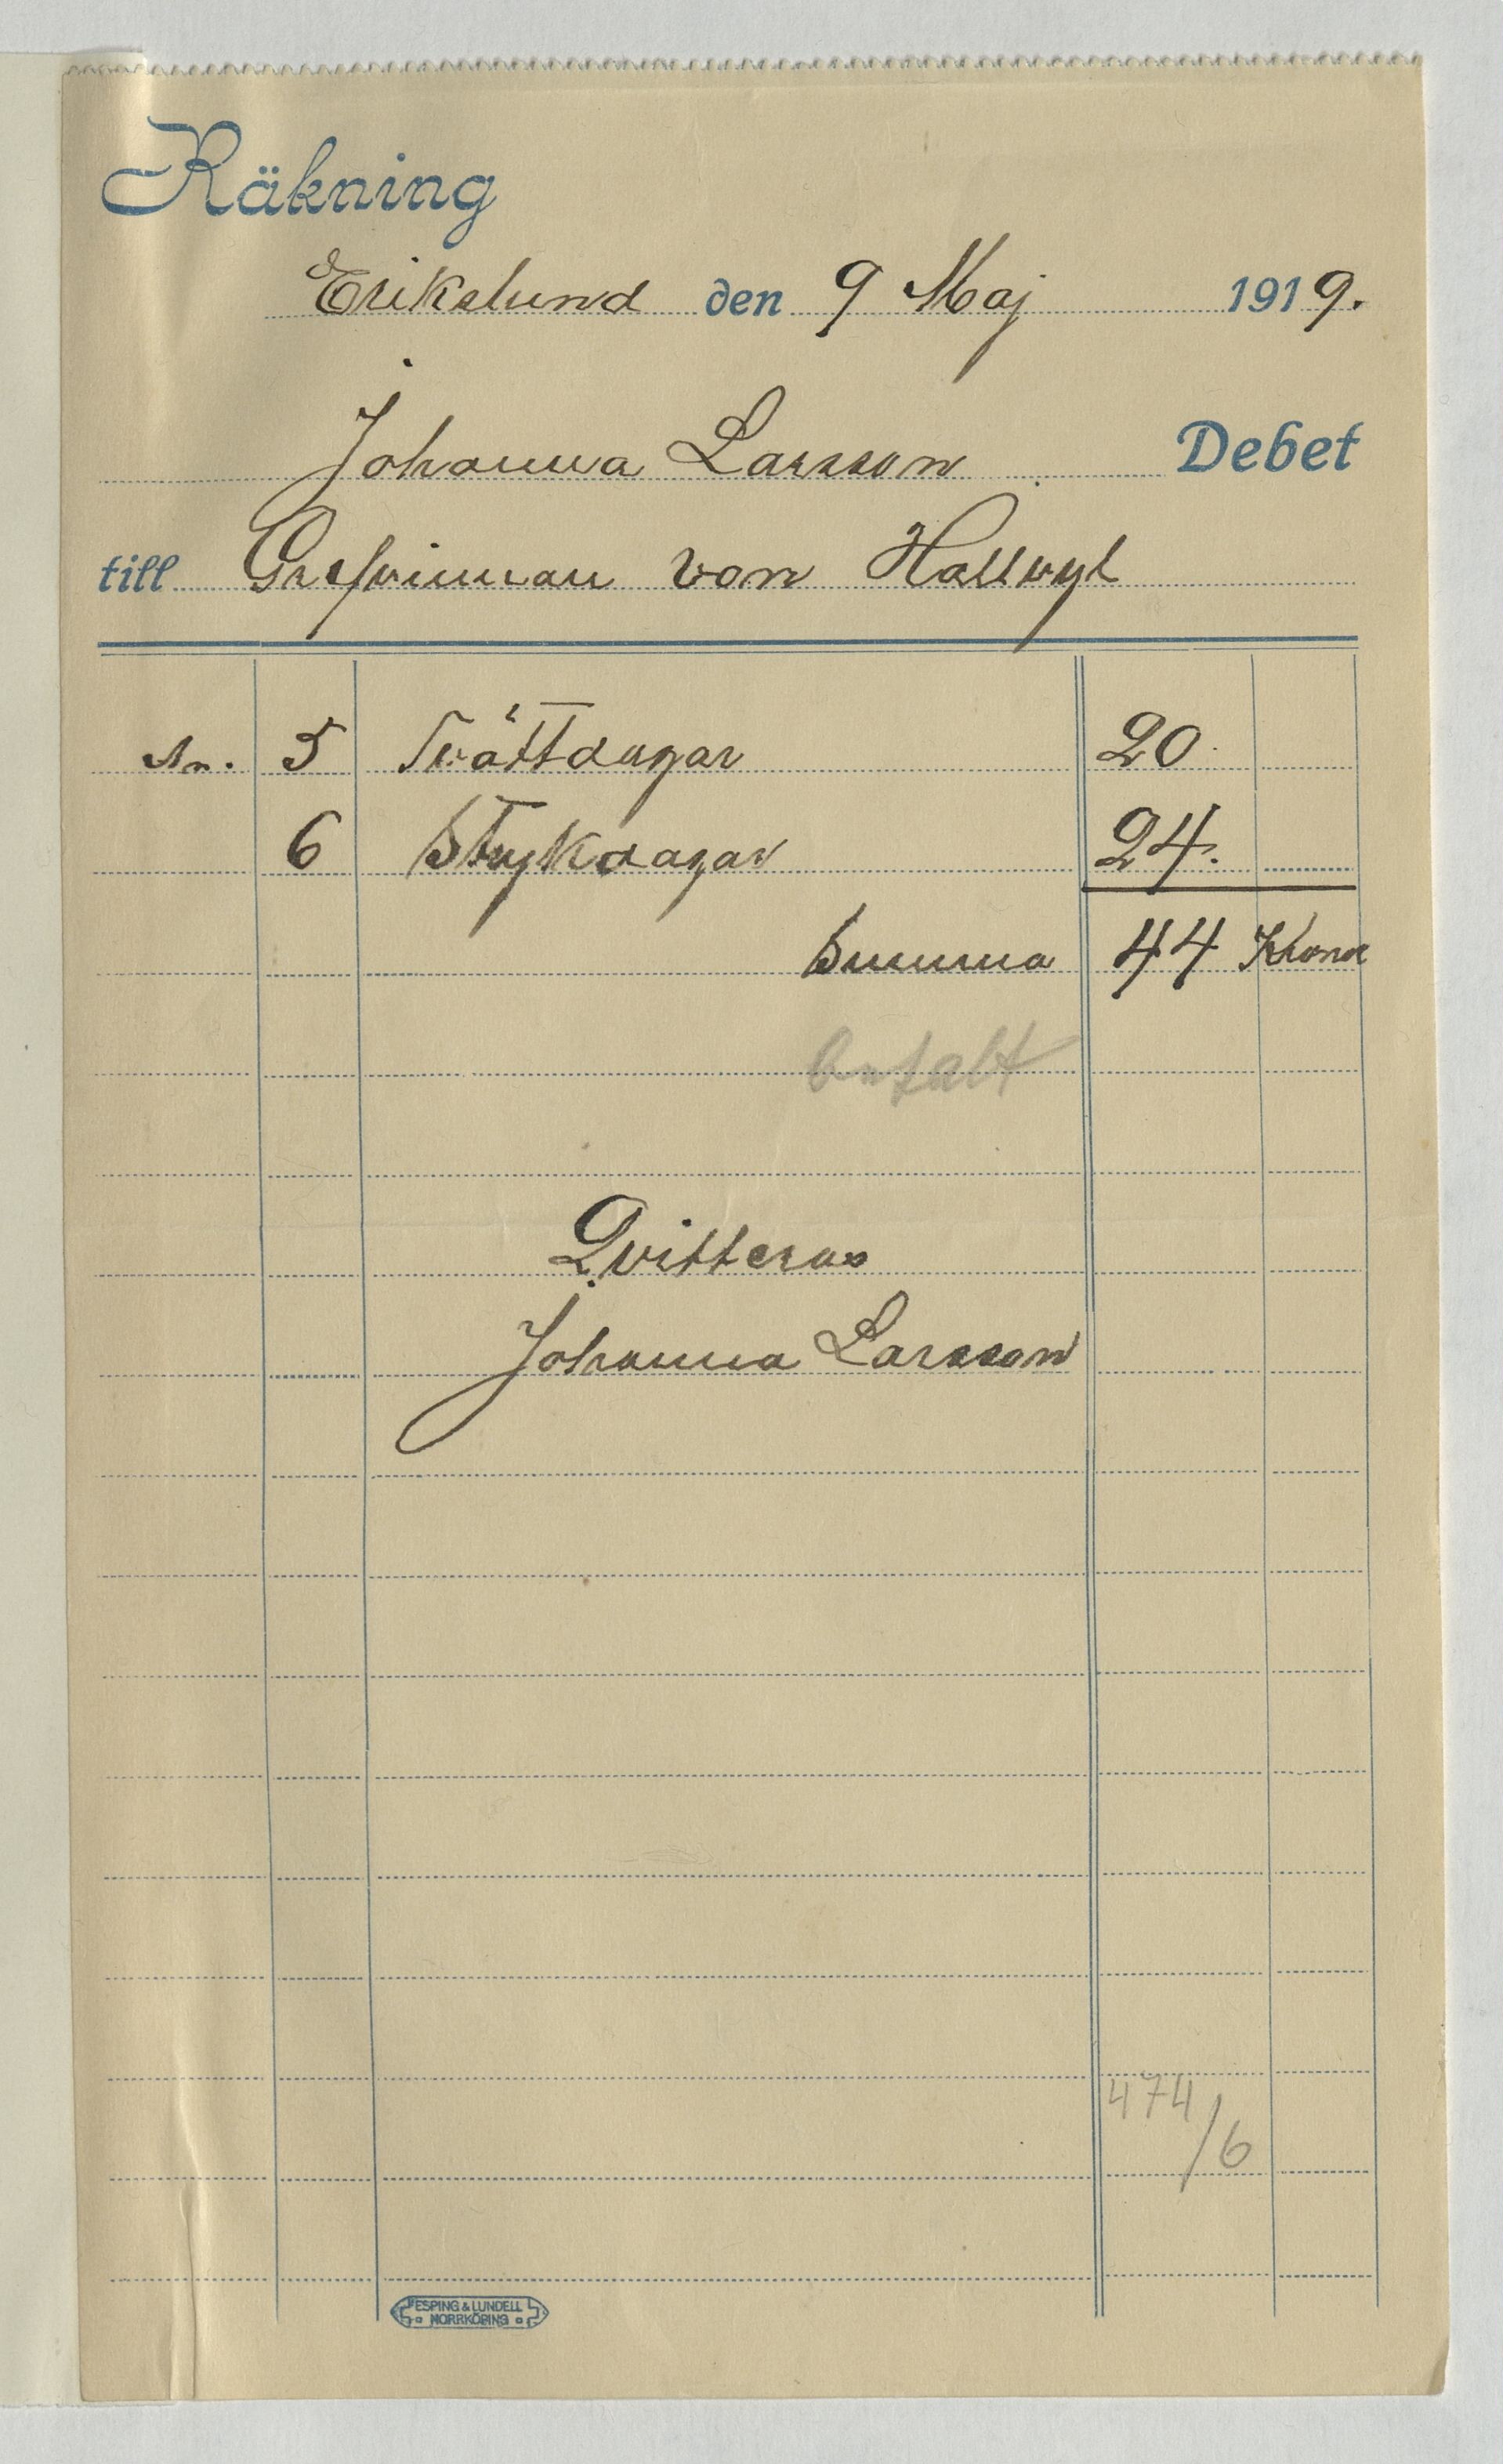 Räkning
Erikslund den 9 Maj 1919.
Johanna Larsson Debet
till Grefvinnan von Hallvyl
5 Tvättdagar 20
6 Strykdagar 24.
Summa 44 Kronor
betalt
Qvitteras
Johanna Larsson
474/6
ESPING & LUNDELL
NORRKÖPING